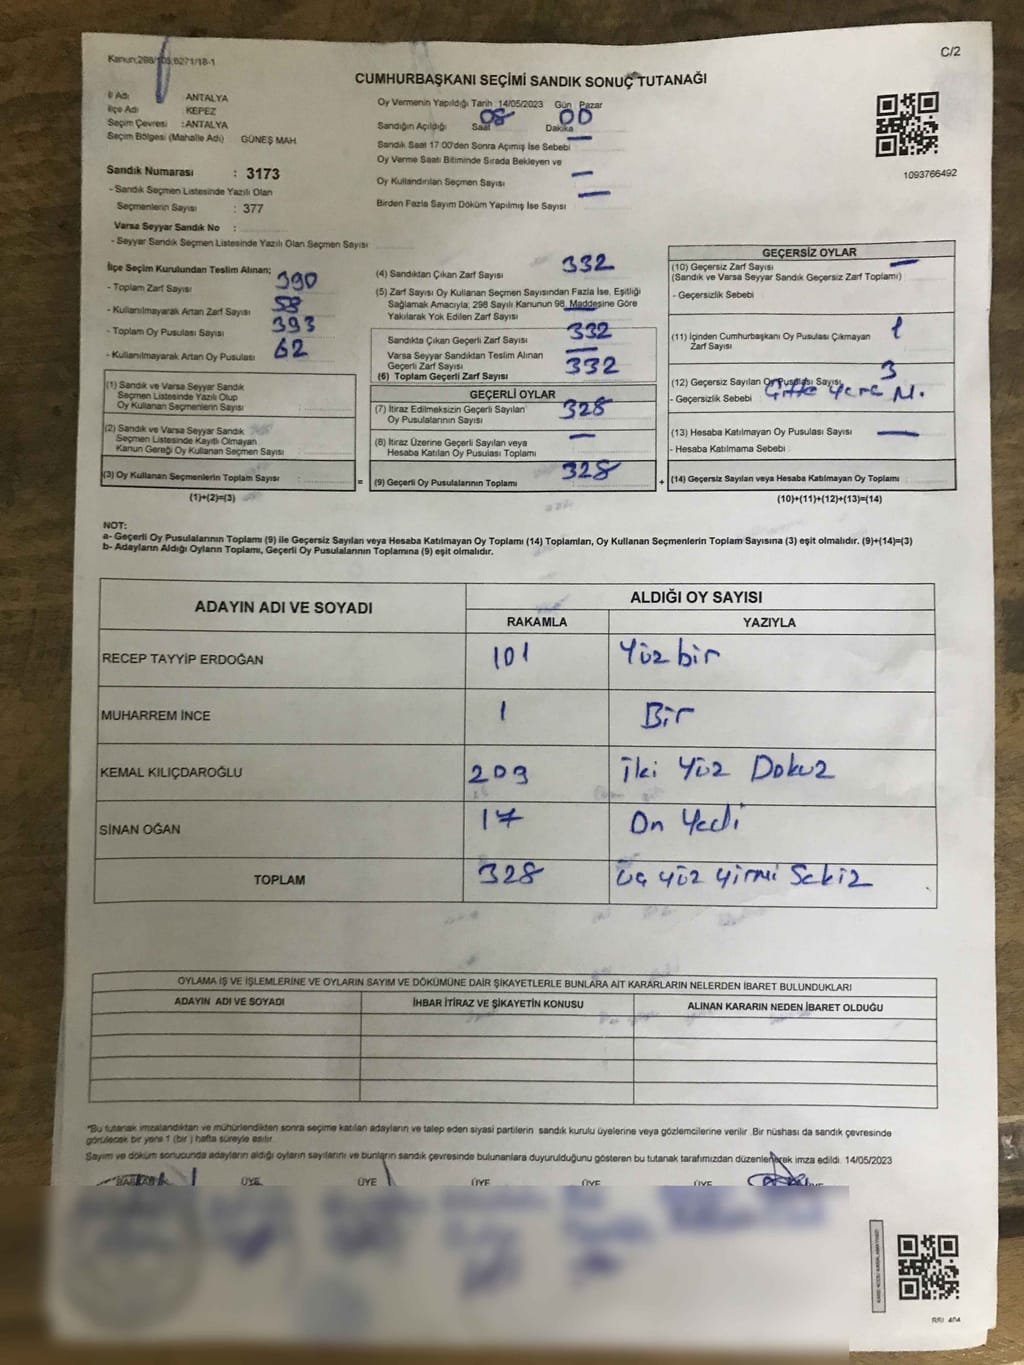 Kanun:298/105,6271/18-1
C/2
CUMHURBAŞKANI SEÇİMİ SANDIK SONUÇ TUTANAĞI
İl Adı ANTALYA
İlçe Adı : KEPEZ
Seçim Çevresi : ANTALYA
Seçim Bölgesi (Mahalle Adı) GÜNEŞ MAH
Sandık Numarası : 3173
- Sandık Seçmen Listesinde Yazılı Olan
Seçmenlerin Sayısı : 377
Varsa Seyyar Sandık No :
- Seyyar Sandık Seçmen Listesinde Yazılı Olan Seçmen Sayısı
Oy Vermenin Yapıldığı Tarih 14/05/2023 Gün Pazar
Sandığın Açıldığı Saat 08 Dakika 00
Sandık Saat 17:00'den Sonra Açımış İse Sebebi —
Oy Verme Saati Bitiminde Sırada Bekleyen ve
Oy Kullandırılan Seçmen Sayısı —
Birden Fazla Sayım Döküm Yapılmış İse Sayısı —
1093766492
İlçe Seçim Kurulundan Teslim Alınan;
- Toplam Zarf Sayısı 390
- Kullanılmayarak Artan Zarf Sayısı 58
- Toplam Oy Pusulası Sayısı 393
- Kullanılmayarak Artan Oy Pusulası 62
(1) Sandık ve Varsa Seyyar Sandık
Seçmen Listesinde Yazılı Olup
Oy Kullanan Seçmenlerin Sayısı :
(2) Sandık ve Varsa Seyyar Sandık
Seçmen Listesinde Kayıtlı Olmayan
Kanun Gereği Oy Kullanan Seçmen Sayısı :
(3) Oy Kullanan Seçmenlerin Toplam Sayısı :
(1)+(2)=(3)
=
(4) Sandıktan Çıkan Zarf Sayısı 332
(5) Zarf Sayısı Oy Kullanan Seçmen Sayısından Fazla İse, Eşitliği
Sağlamak Amacıyla; 298 Sayılı Kanunun 98. Maddesine Göre
Yakılarak Yok Edilen Zarf Sayısı —
Sandıkta Çıkan Geçerli Zarf Sayısı 332
Varsa Seyyar Sandıktan Teslim Alınan
Geçerli Zarf Sayısı —
(6) Toplam Geçerli Zarf Sayısı 332
GEÇERLİ OYLAR
(7) İtiraz Edilmeksizin Geçerli Sayılan
Oy Pusulasının Sayısı 328
(8) İtiraz Üzerine Geçerli Sayılan veya
Hesaba Katılan Oy Pusulası Toplamı —
(9) Geçerli Oy Pusulalarının Toplamı 328
+
GEÇERSİZ OYLAR
(10) Geçersiz Zarf Sayısı —
(Sandık ve Varsa Seyyar Sandık Geçersiz Zarf Toplamı)
- Geçersizlik Sebebi
(11) İçinden Cumhurbaşkanı Oy Pusulası Çıkmayan
Zarf Sayısı 1
(12) Geçersiz Sayılan Oy Pusulası Sayısı 3
- Geçersizlik Sebebi Çifte yere M.
(13) Hesaba Katılmayan Oy Pusulası Sayısı —
- Hesaba Katılmama Sebebi
(14) Geçersiz Sayılan veya Hesaba Katılmayan Oy Toplamı :
(10)+(11)+(12)+(13)=(14)
NOT:
a- Geçerli Oy Pusulalarının Toplamı (9) ile Geçersiz Sayılan veya Hesaba Katılmayan Oy Toplamı (14) Toplamları, Oy Kullanan Seçmenlerin Toplam Sayısına (3) eşit olmalıdır. (9)+(14)=(3)
b- Adayların Aldığı Oyların Toplamı, Geçerli Oy Pusulalarının Toplamına (9) eşit olmalıdır.
ADAYIN ADI VE SOYADI ALDIĞI OY SAYISI
RAKAMLA YAZIYLA
RECEP TAYYİP ERDOĞAN 101 Yüz bir
MUHARREM İNCE 1 Bir
KEMAL KILIÇDAROĞLU 209 İki Yüz Dokuz
SİNAN OĞAN 17 On Yedi
TOPLAM 328 üç yüz yirmi Sekiz
OYLAMA İŞ VE İŞLEMLERİNE VE OYLARIN SAYIM VE DÖKÜMÜNE DAİR ŞİKAYETLERLE BUNLARA AİT KARARLARIN NELERDEN İBARET BULUNDUKLARI
ADAYIN ADI VE SOYADI İHBAR İTİRAZ VE ŞİKAYETİN KONUSU ALINAN KARARIN NEDEN İBARET OLDUĞU
*Bu tutanak imzalandıktan ve mühürlendikten sonra seçime katılan adayların ve talep eden siyasi partilerin sandık kurulu üyelerine veya gözlemcilerine verilir. Bir nüshası da sandık çevresinde
görülecek bir yere 1 (bir) hafta süreyle asılır.
Sayım ve döküm sonucunda adayların aldığı oyların sayılarını ve bunların sandık çevresinde bulunanlara duyurulduğunu gösteren bu tutanak tarafımızdan düzenlenerek imza edildi. 14/05/2023
BAŞKAN ÜYE ÜYE ÜYE ÜYE ÜYE ÜYE